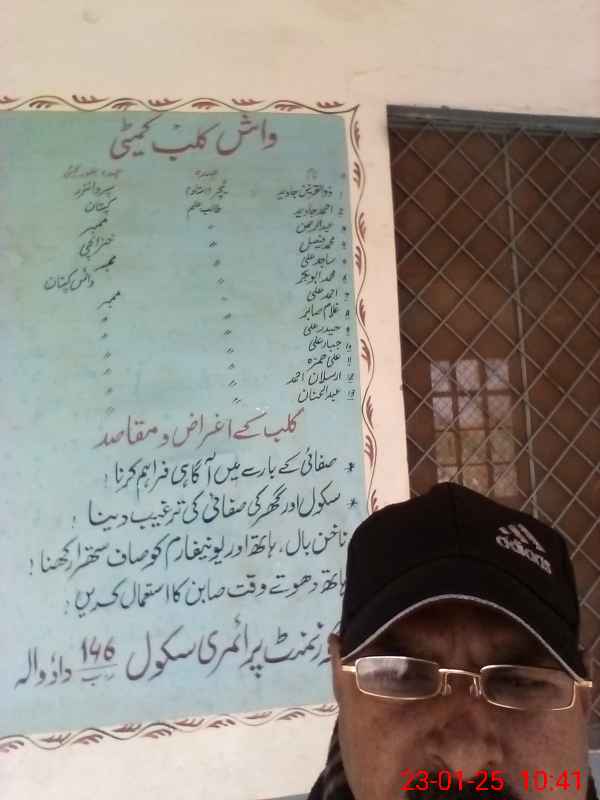 واش کلب کمیٹی
نام عہدہ
۱ ذوالقرنین جاوید ٹیچر سپروائزر
۲ احمد جاوید طالب علم کپتان
۳ عبدالرحمن 〃 ممبر
۴ محمد فیصل 〃 خزانچی
۵ ساجد علی 〃 ممبر
۶ محمد ابوبکر 〃 وائس کپتان
۷ احمد علی 〃 ممبر
۸ غلام صابر 〃 〃
۹ حیدر علی 〃 〃
۱۰ جبار علی 〃 〃
۱۱ علی حمزہ 〃 〃
۱۲ ارسلان احمد 〃 〃
۱۳ عبدالحنان 〃 〃
کلب کے اغراض و مقاصد
* صفائی کے بارے میں آگاہی فراہم کرنا!
* سکول اور گھر کی صفائی کی ترغیب دینا!
ناخن بال، ہاتھ اور یونیفارم کو صاف ستھرا رکھنا!
ہاتھ دھوتے وقت صابن کا استعمال کریں!
گورنمنٹ پرائمری سکول 146 داؤ والہ
adidas
23-01-25 10:41